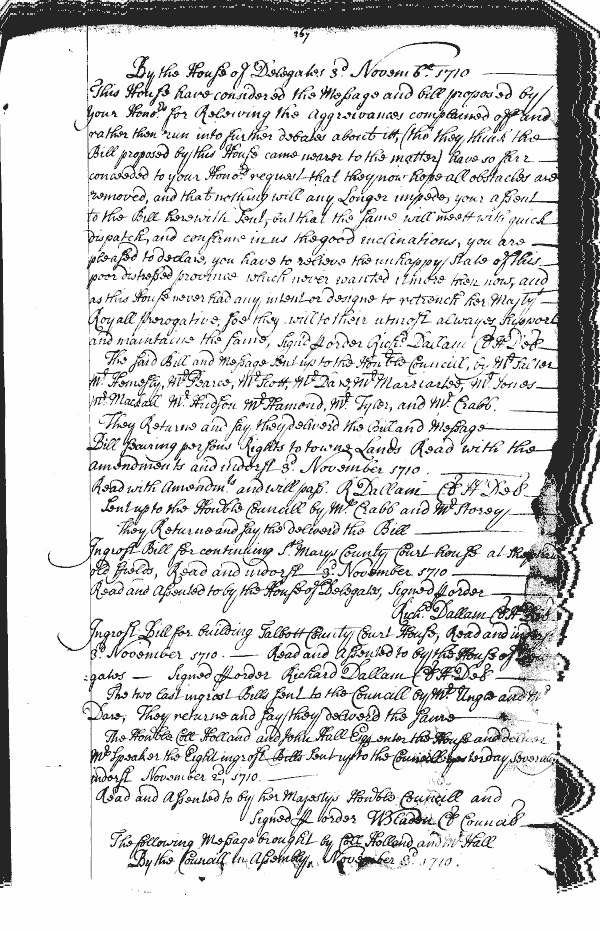 267
By the House of Delegates 3d Novembr 1710
This House have considered the Message and bill proposed by
your Honrs for Releiving the Aggreivances complained off and
rather then run into further debates about itt, (tho they think the
Bill proposed by this House came nearer to the matter) have so farr
conceeded to your Honrs request that they now hope all obstacles are
removed, and that nothing will any Longer impede your assent
to the Bill herewith sent, but that the same will meett with quick
dispatch, and confirme in us the good inclinations, you are
pleased to declare, you have to releive the unhappy state of this
poor distressed province which never wanted it more then now, and
as this House never had any intent or designe to retrench her Majtys
Royall prerogative, soe they will to their utmost allwayes support
and maintaine the same, Signd p order Richd Dallam Cl H Del
The said Bill and Message sent up to the Honble Council, by Mr
Mr Hemsley, Mr Pearce, Mr Scott, Mr Dare, Mr Marriartee, Mr Jones
Mr Mackall Mr Hudson Mr Hamond, Mr Tyler, and Mr Crabb.
They Returne and say they deliverd the bill and Message
Bill securing persons Rights to towne Lands Read with the
amendments and indorst 3d November 1710
Read with Amendmts and will pass. R Dallam Cl H Del
Sent up to the Honble Councill by Mr Crabb and Mr Storey
They Returne and say the deliverd the Bill
Ingrost Bill for continuing St Marys County Court house at
old fields, Read and indorst 3d November 1710
Read and Assented to by the House of Delegates, Signed p order
Richd Dallam Cl H Del
Ingrost Bill for building Talbott County Court House, Read and indorst
3d November 1710 — Read and Assented to by the House of
gates — Signed p order Richard Dallam Cl H Del
The two last ingrost Bills sent to the Councill by Mr Ungle and Mr
Dare, They returne and say they deliverd the same
The Honble Coll Holland and John Hall Esqs enter the House and deliver
Mr Speaker the Eight ingrost Bills sent up to the Councill yesterday severally
indorst November 2d 1710.
Read and Assented to by her Majestys Honble Councill and
Signed p order W Bladen Cl Council
The following Message brought by Coll Holland and Mr Hall
By the Councill in Assembly, November 3d 1710.